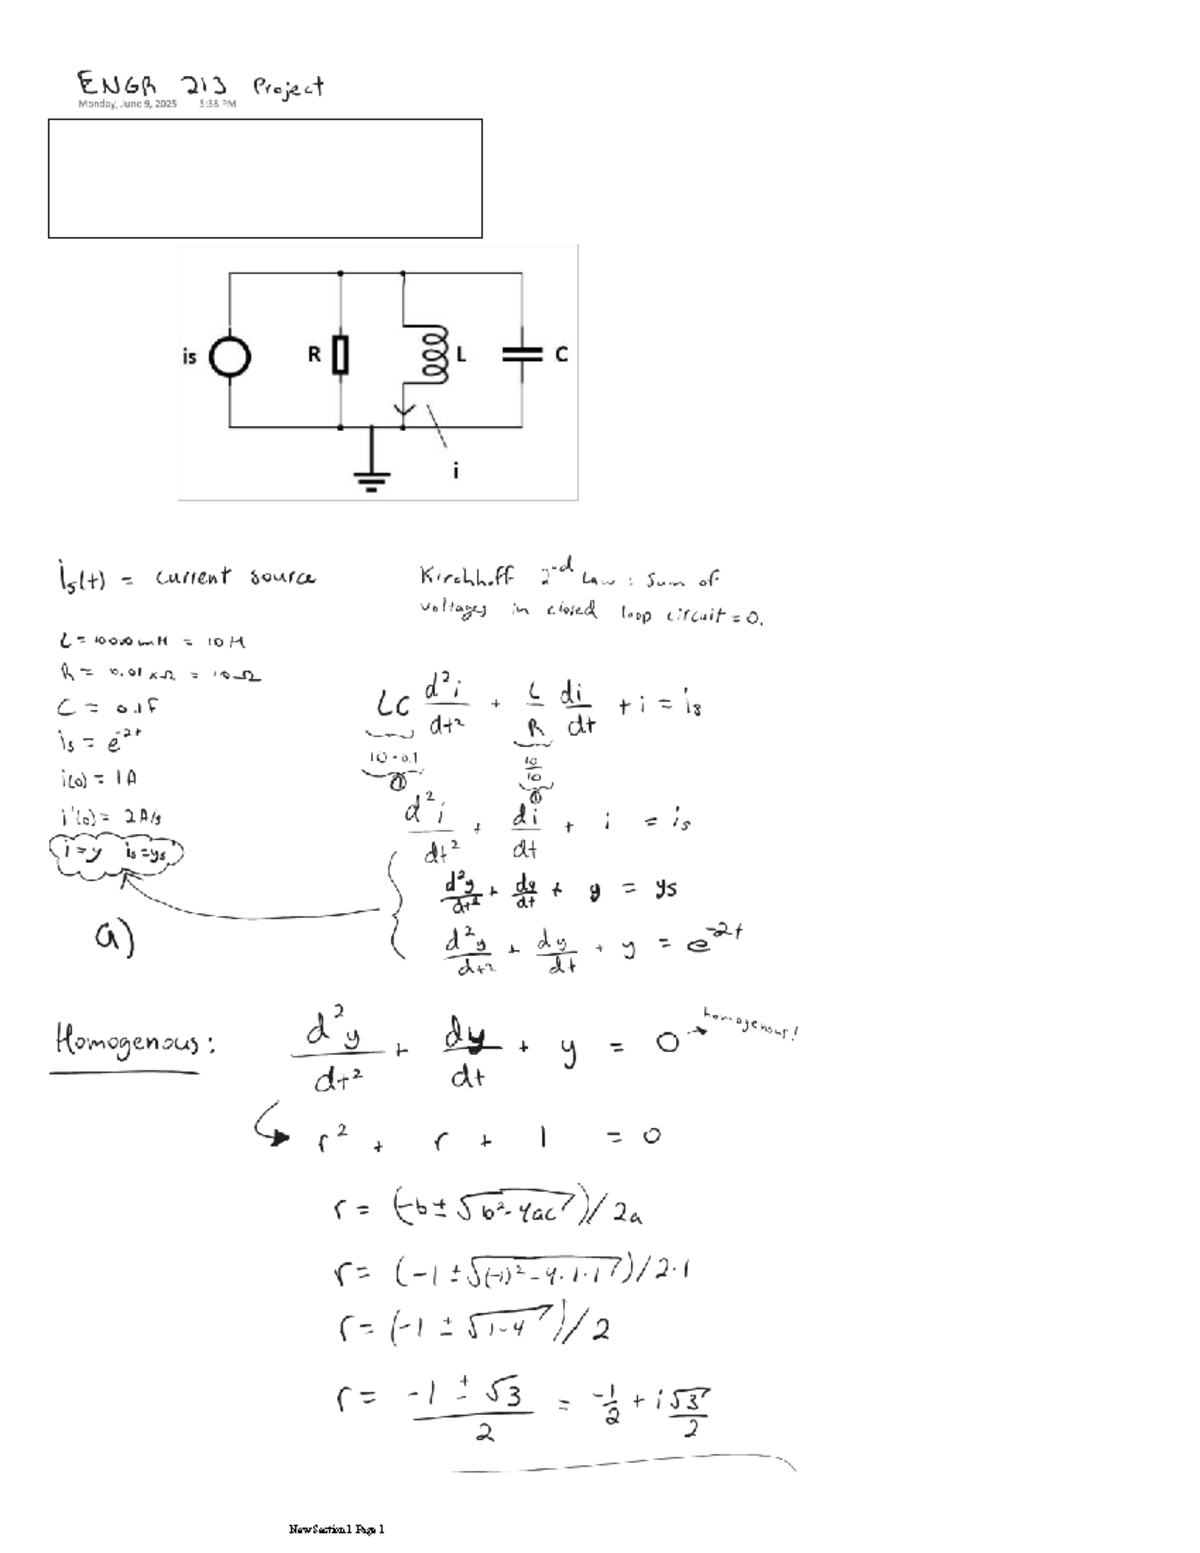 ENGR 213 Project
Monday, June 9, 2025 3:38 PM
is
R
L
C
i
is(t) = current source
Kirchhoff 2nd Law: Sum of
voltages in closed loop circuit = 0.
L = 10000mH = 10H
R = 0.01 KΩ = 10Ω
C = 0.1F
is = e^-2t
i(0) = 1A
i'(0) = 2A/s
i=y is=ys
LC d²i/dt² + L/R di/dt + i = is
10·0.1 10/10
① ①
d²i/dt² + di/dt + i = is
d²y/dt² + dy/dt + y = ys
a)
d²y/dt² + dy/dt + y = e^-2t
Homogenous: d²y/dt² + dy/dt + y = 0 → homogenous!
r² + r + 1 = 0
r = (-b±√b²-4ac)/2a
r = (-1±√(-1)²-4·1·1)/2·1
r = (-1±√1-4)/2
r = -1±√3/2 = -1/2 + i√3/2
New Section 1 Page 1